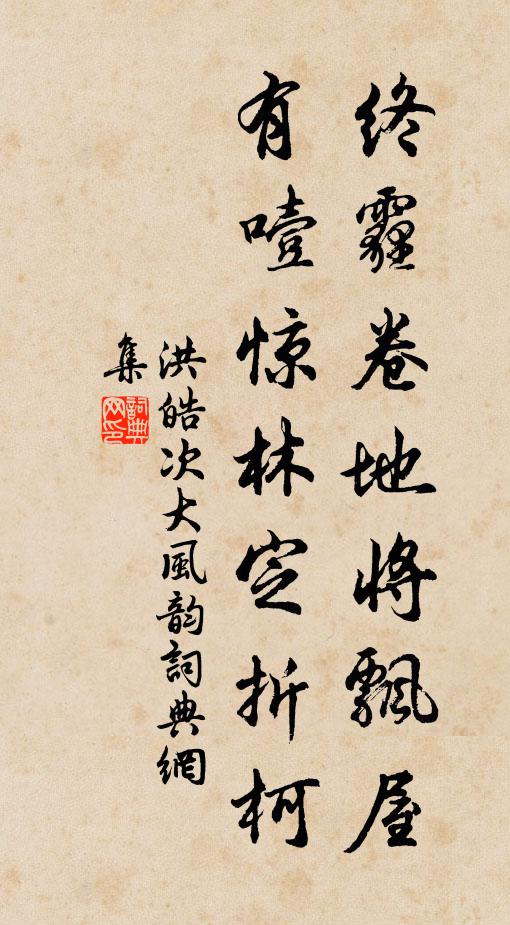 终霾卷地将飄屋
有噎惊林定折柯
洪皓次大風韵詞典網
集
詞典
网印